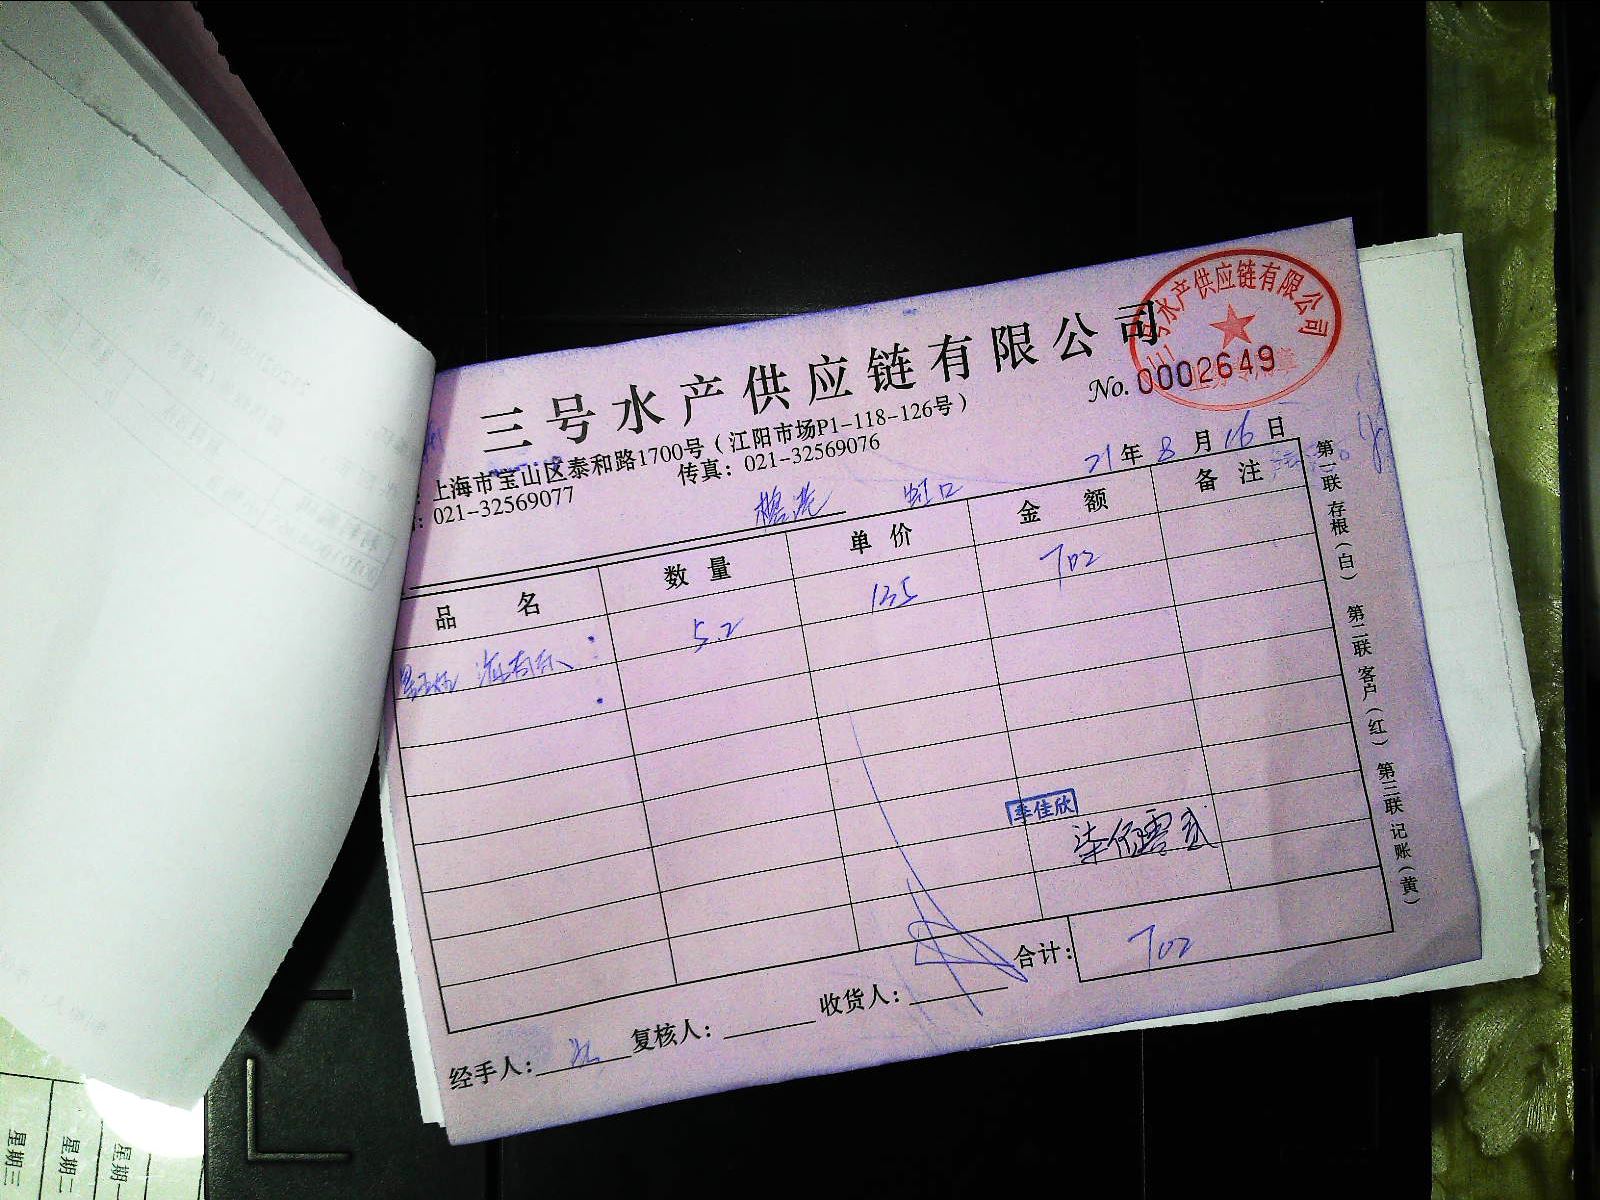 三号水产供应链有限公司
三号水产供应链有限公司
No. 0002649
：上海市宝山区泰和路1700号（江阳市场P1-118-126号）
：021-32569077 传真：021-32569076
虹口 21年8月16日
品名 数量 单价 金额 备注
海南东 5.2 135 702
李佳欣
柒佰零贰
合计： 702
经手人： 复核人： 收货人：
第一联 存根（白） 第二联 客户（红） 第三联 记账（黄）
星期一
星期二
星期三